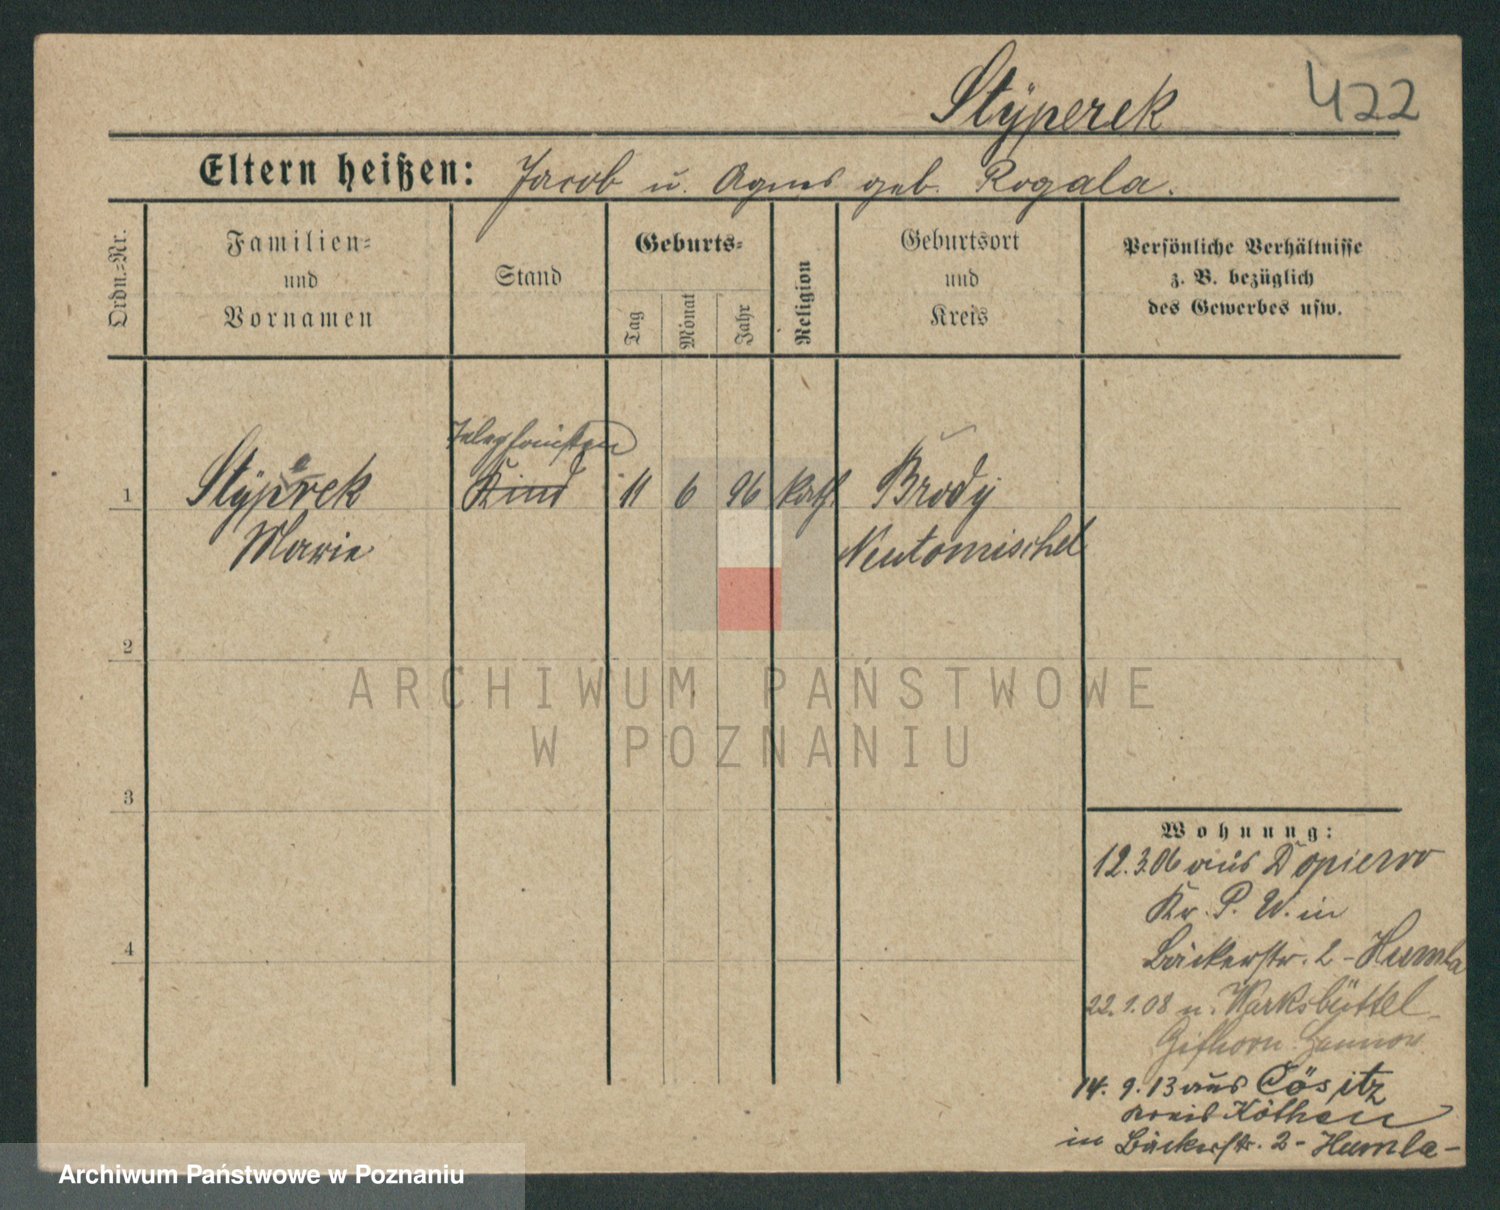 Stÿperek 422
Eltern heißen: Jacob u. Agnes geb. Rogala.
Ordn.-Nr.
Familien-
und
Vornamen
Stand
Geburts-
Tag
Monat
Jahr
Religion
Geburtsort
und
Kreis
Persönliche Verhältnisse
z. B. bezüglich
des Gewerbes usw.
Telephonistin
1 Stÿperek Kind 11 6 96 kath Brody
Marie Neutomischel
2
3
4
Wohnung:
12.3.06 aus Dopiewo
Kr. P. W. in
Bäckerstr. 2 - Humla
22.1.08 n. Warksbüttel
Gifhorn Hannov
14. 9. 13 aus Cösitz
Kreis Köthen
in Bäckerstr. 2 - Humla -
ARCHIWUM PAŃSTWOWE
W POZNANIU
Archiwum Państwowe w Poznaniu